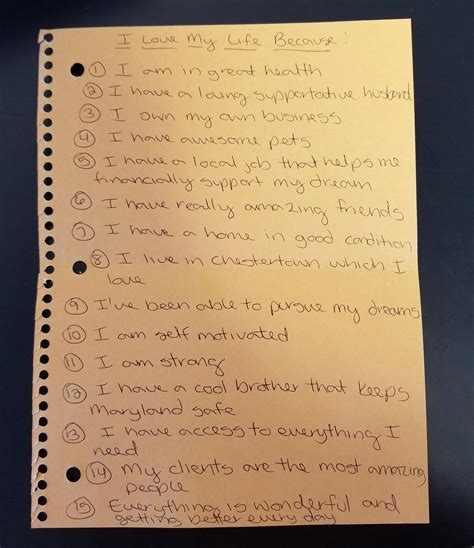 I Love My Life Because!
① I am in great health
② I have a loving supportative husband
③ I own my own business
④ I have awesome pets
⑤ I have a local job that helps me
financially support my dream
⑥ I have really amazing friends
⑦ I have a home in good condition
⑧ I live in Chestertown which I
love
⑨ I've been able to pursue my dreams
⑩ I am self motivated
⑪ I am strong
⑫ I have a cool brother that keeps
Maryland safe
⑬ I have access to everything I
need
⑭ My clients are the most amazing
people
⑮ Everything is wonderful and
getting better every day